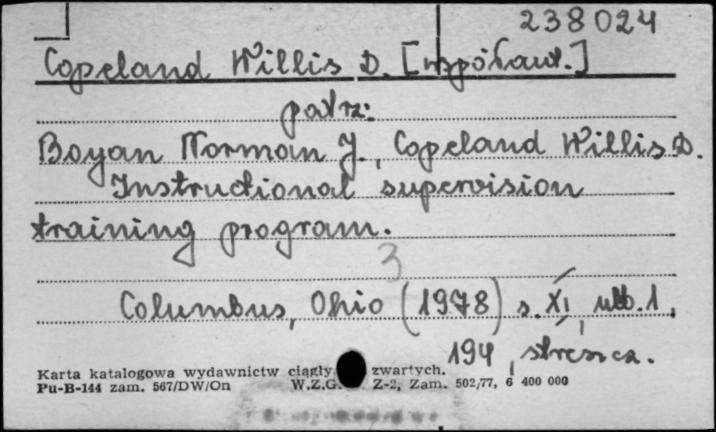 238024
Copeland Willis D. [współaut.]
patrz:
Boyan Norman J., Copeland Willis D.
Instructional supervision
training program.
3
Columbus, Ohio (1978) s. XI, nlb. 1,
194, streszcz.
Karta katalogowa wydawnictw ciągły zwartych.
Pu-B-144 zam. 567/DW/On W.Z.G. Z-2, Zam. 502/77, 6 400 000